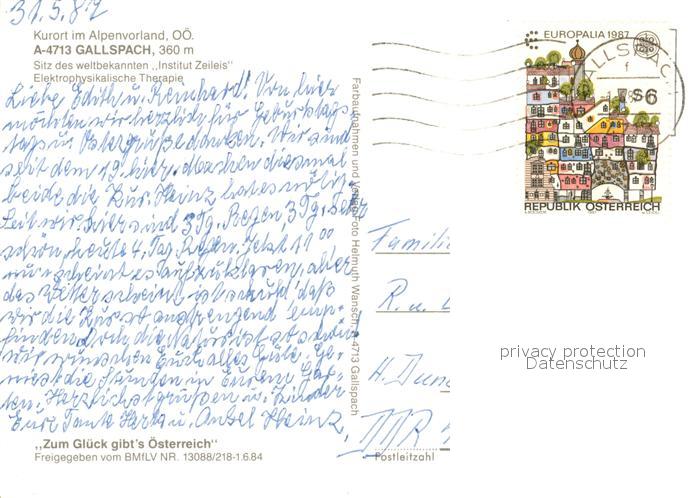 31.5.87
Kurort im Alpenvorland, OÖ.
A-4713 GALLSPACH, 360 m
Sitz des weltbekannten ,,Institut Zeileis"
Elektrophysikalische Therapie
Liebe Edith u. Reinhard! Von hier
möchten wir herzlich für Geburtstags
u. Ostergrüße danken. Wir sind
seit dem 19. hier. Machen diesmal
beide die Kur. Heinz hat es nötig.
Seit wir hier sind 3 Tg. Regen, 3 Tg. sehr
schön, heute 4. Tag Regen. Jetzt 11 00
scheint es aufzuklaren, aber
das Wetter scheint ist schuld, daß
wir die Kur so anstrengend emp-
finden. Doch die Natur ist so schön.
Wir wünschen Euch alles Gute. Ge-
nießt die Stunden in Eurem Gar-
ten. Herzlichst grüßen u.
Eure Tante Herta u. Onkel Heinz.
,,Zum Glück gibt's Österreich"
Freigegeben vom BMfLV NR. 13088/218-1.6.84
Farbaufnahmen und Verlag: Foto Helmuth Wansch, A-4713 Gallspach
EUROPALIA 1987
GALLSPACH
S6
REPUBLIK ÖSTERREICH
Famili
R. u.
H. Dun
DDR
Postleitzahl
privacy protection
Datenschutz